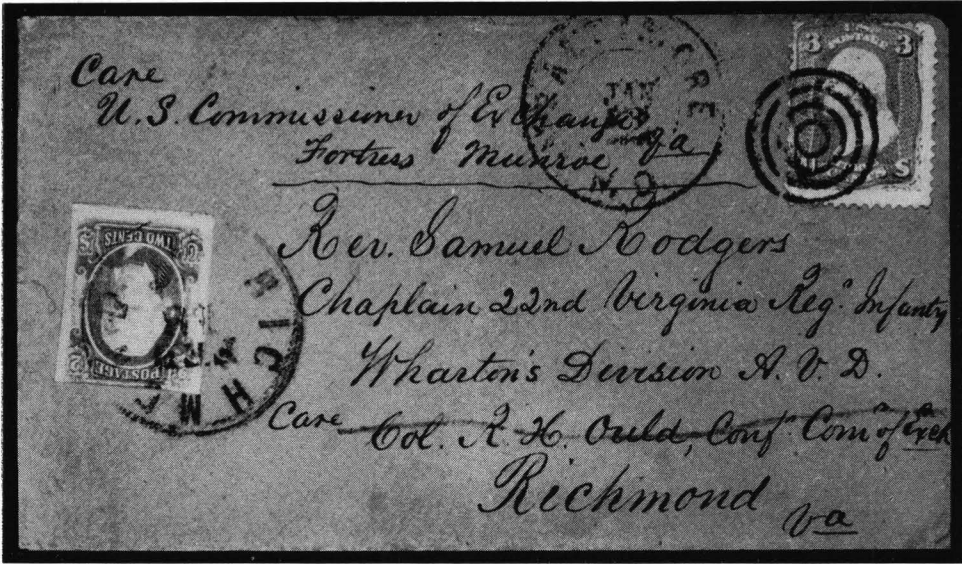 Care
U.S. Commissioner of Exchange
Fortress Munroe Va
Rev. Samuel Rodgers
Chaplain 22nd Virginia Reg. Infanty
Wharton's Division A. V. D.
Care Col. R. H. Ould, Conf. Com of Exch
Richmond
Va
3 POSTAGE 3
JAN
TWO CENTS
POSTAGE